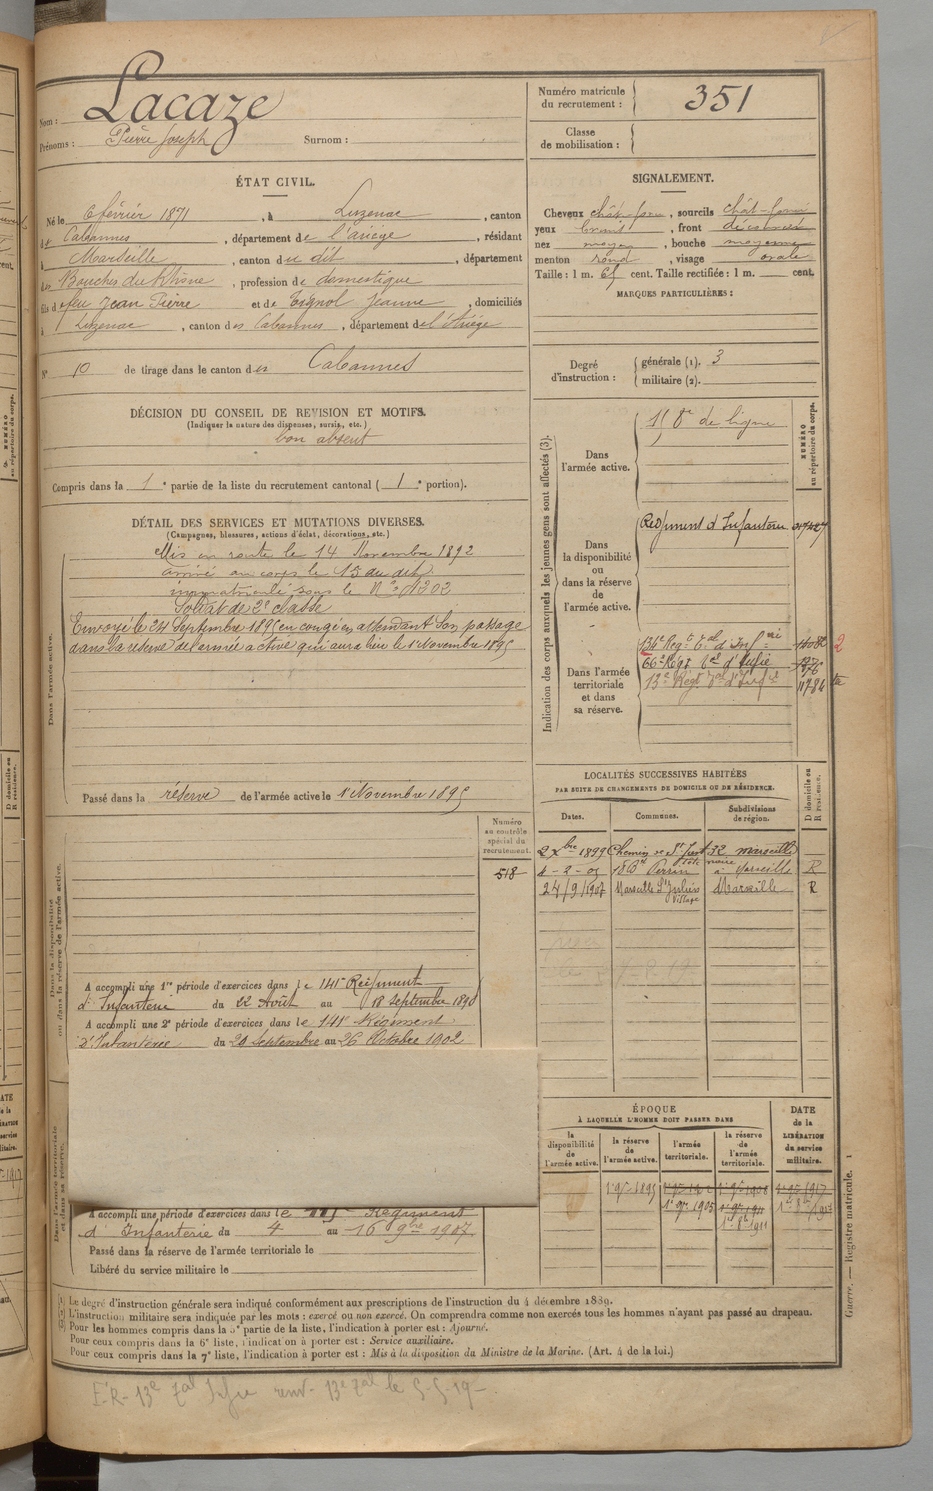 Nom : Lacaze
Prénoms : Pierre Joseph Surnom :
Numéro matricule du recrutement : 351
Classe de mobilisation :
ÉTAT CIVIL.
Né le 6 février 1871, à Luzenac, canton
de Cabannes, département de l'ariége, résidant
à Marseille, canton du dit, département
des Bouches du Rhône, profession de domestique
fils de feu Jean Pierre et de Tignol Jeanne, domiciliés
à Luzenac, canton des Cabannes, département de l'Ariége
N° 10 de tirage dans le canton des Cabannes
SIGNALEMENT.
Cheveux chât-foncé, sourcils chât-foncé
yeux, front découvert
nez moyen, bouche moyenne
menton rond, visage ovale
Taille : 1 m. 65 cent. Taille rectifiée : 1 m. cent.
MARQUES PARTICULIÈRES :
Degré d'instruction : générale (1). 3
militaire (2).
DÉCISION DU CONSEIL DE REVISION ET MOTIFS.
(Indiquer la nature des dispenses, sursis, etc.)
bon absent
Compris dans la 1e partie de la liste du recrutement cantonal (1e portion).
DÉTAIL DES SERVICES ET MUTATIONS DIVERSES.
(Campagnes, blessures, actions d'éclat, décorations, etc.)
Mis en route le 14 Novembre 1892
arrivé au corps le 15 du dit.
immatriculé sous le N°
Soldat de 2e classe
Envoyé le 24 Septembre 1895 en congé en attendant son passage
dans la réserve de l'armée active qui aura lieu le 1er Novembre 1895
Dans l'armée active.
Passé dans la réserve de l'armée active le 1er Novembre 1895
Indication des corps auxquels les jeunes gens sont affectés (3).
NUMÉRO au répertoire du corps.
Dans l'armée active.
de ligne
Dans la disponibilité ou dans la réserve de l'armée active.
Régiment d'Infanterie
Dans l'armée territoriale et dans sa réserve.
134e Régt Tal d'Infrie
2
66e Régt Tal d'Infie
13e Régt Tal d'Infie
LOCALITÉS SUCCESSIVES HABITÉES
PAR SUITE DE CHANGEMENTS DE DOMICILE OU DE RÉSIDENCE.
Dates. Communes. Subdivisions de région. D domicile ou R résidence.
2 Xbre 1899 Chemin de St Just 32 marseille
4-2-05 18 Bd Perrin à Marseille R
24/9/1907 Marseille St Julien Village Marseille R
Numéro au contrôle spécial du recrutement.
518
Dans la disponibilité ou dans la réserve de l'armée active.
A accompli une 1re période d'exercices dans le 141e Régiment
d'Infanterie du 22 Août au 18 Septembre 1898
A accompli une 2e période d'exercices dans le 141e Régiment
d'Infanterie du 29 Septembre au 26 Octobre 1902
ÉPOQUE
À LAQUELLE L'HOMME DOIT PASSER DANS
la disponibilité de l'armée active. la réserve de l'armée active. l'armée territoriale. la réserve de l'armée territoriale. DATE de la LIBÉRATION du service militaire.
1er 9bre 1895
1er 9bre 1905
Dans l'armée territoriale et dans sa réserve.
A accompli une période d'exercices dans le 115e Régiment
d'Infanterie du 4 au 16 9bre 1907
Passé dans la réserve de l'armée territoriale le
Libéré du service militaire le
(1) Le degré d'instruction générale sera indiqué conformément aux prescriptions de l'instruction du 4 décembre 1889.
(2) L'instruction militaire sera indiquée par les mots : exercé ou non exercé. On comprendra comme non exercés tous les hommes n'ayant pas passé au drapeau.
(3) Pour les hommes compris dans la 5e partie de la liste, l'indication à porter est : Ajourné.
Pour ceux compris dans la 6e liste, l'indication à porter est : Service auxiliaire.
Pour ceux compris dans la 7e liste, l'indication à porter est : Mis à la disposition du Ministre de la Marine. (Art. 4 de la loi.)
Guerre. — Registre matricule. 1